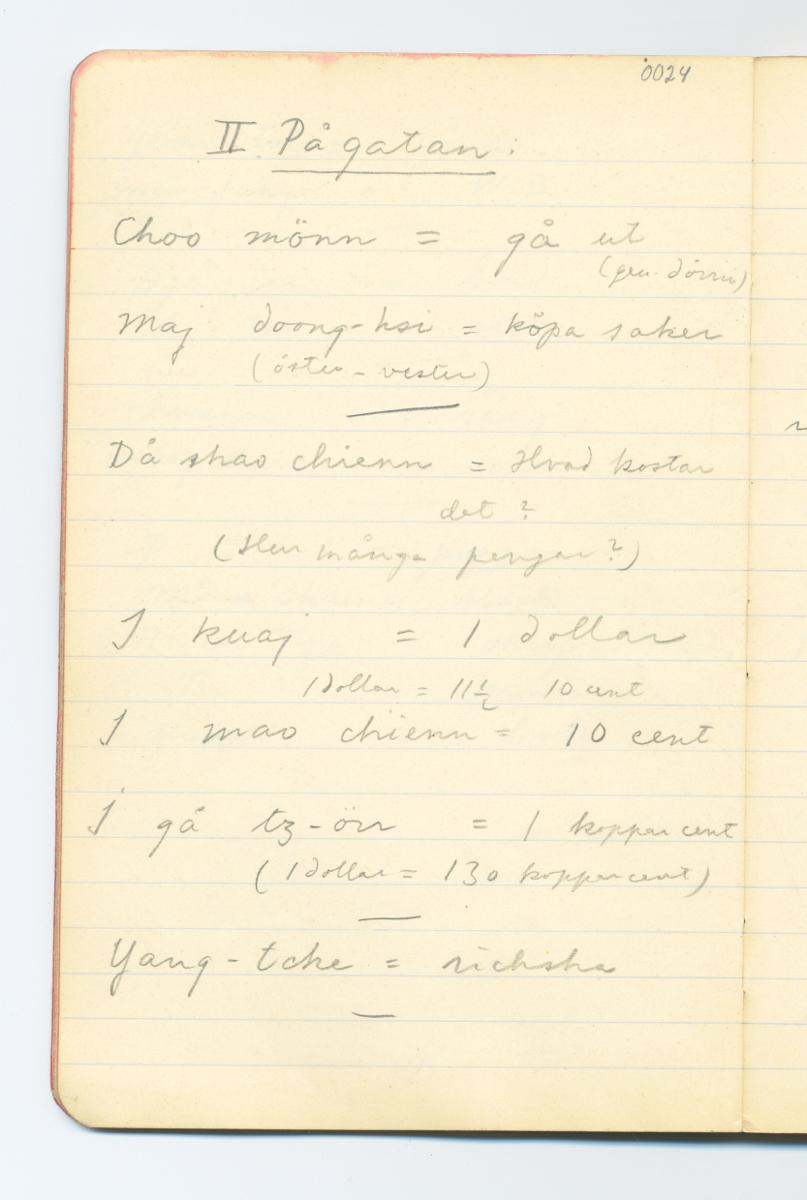 0024
II På gatan.
Choo mönn = gå ut
(gen. dörren)
Maj doong-hsi = köpa saker
(öster - vester)
Då shao chienn = Hvad kostar
det?
(Hur många pengar?)
I kuaj = 1 dollar
1 dollar = 11½ 10 cent
I mao chienn = 10 cent
I gå tz-örr = 1 koppar cent
(1 dollar = 130 koppar cent)
Yang-tche = richsha